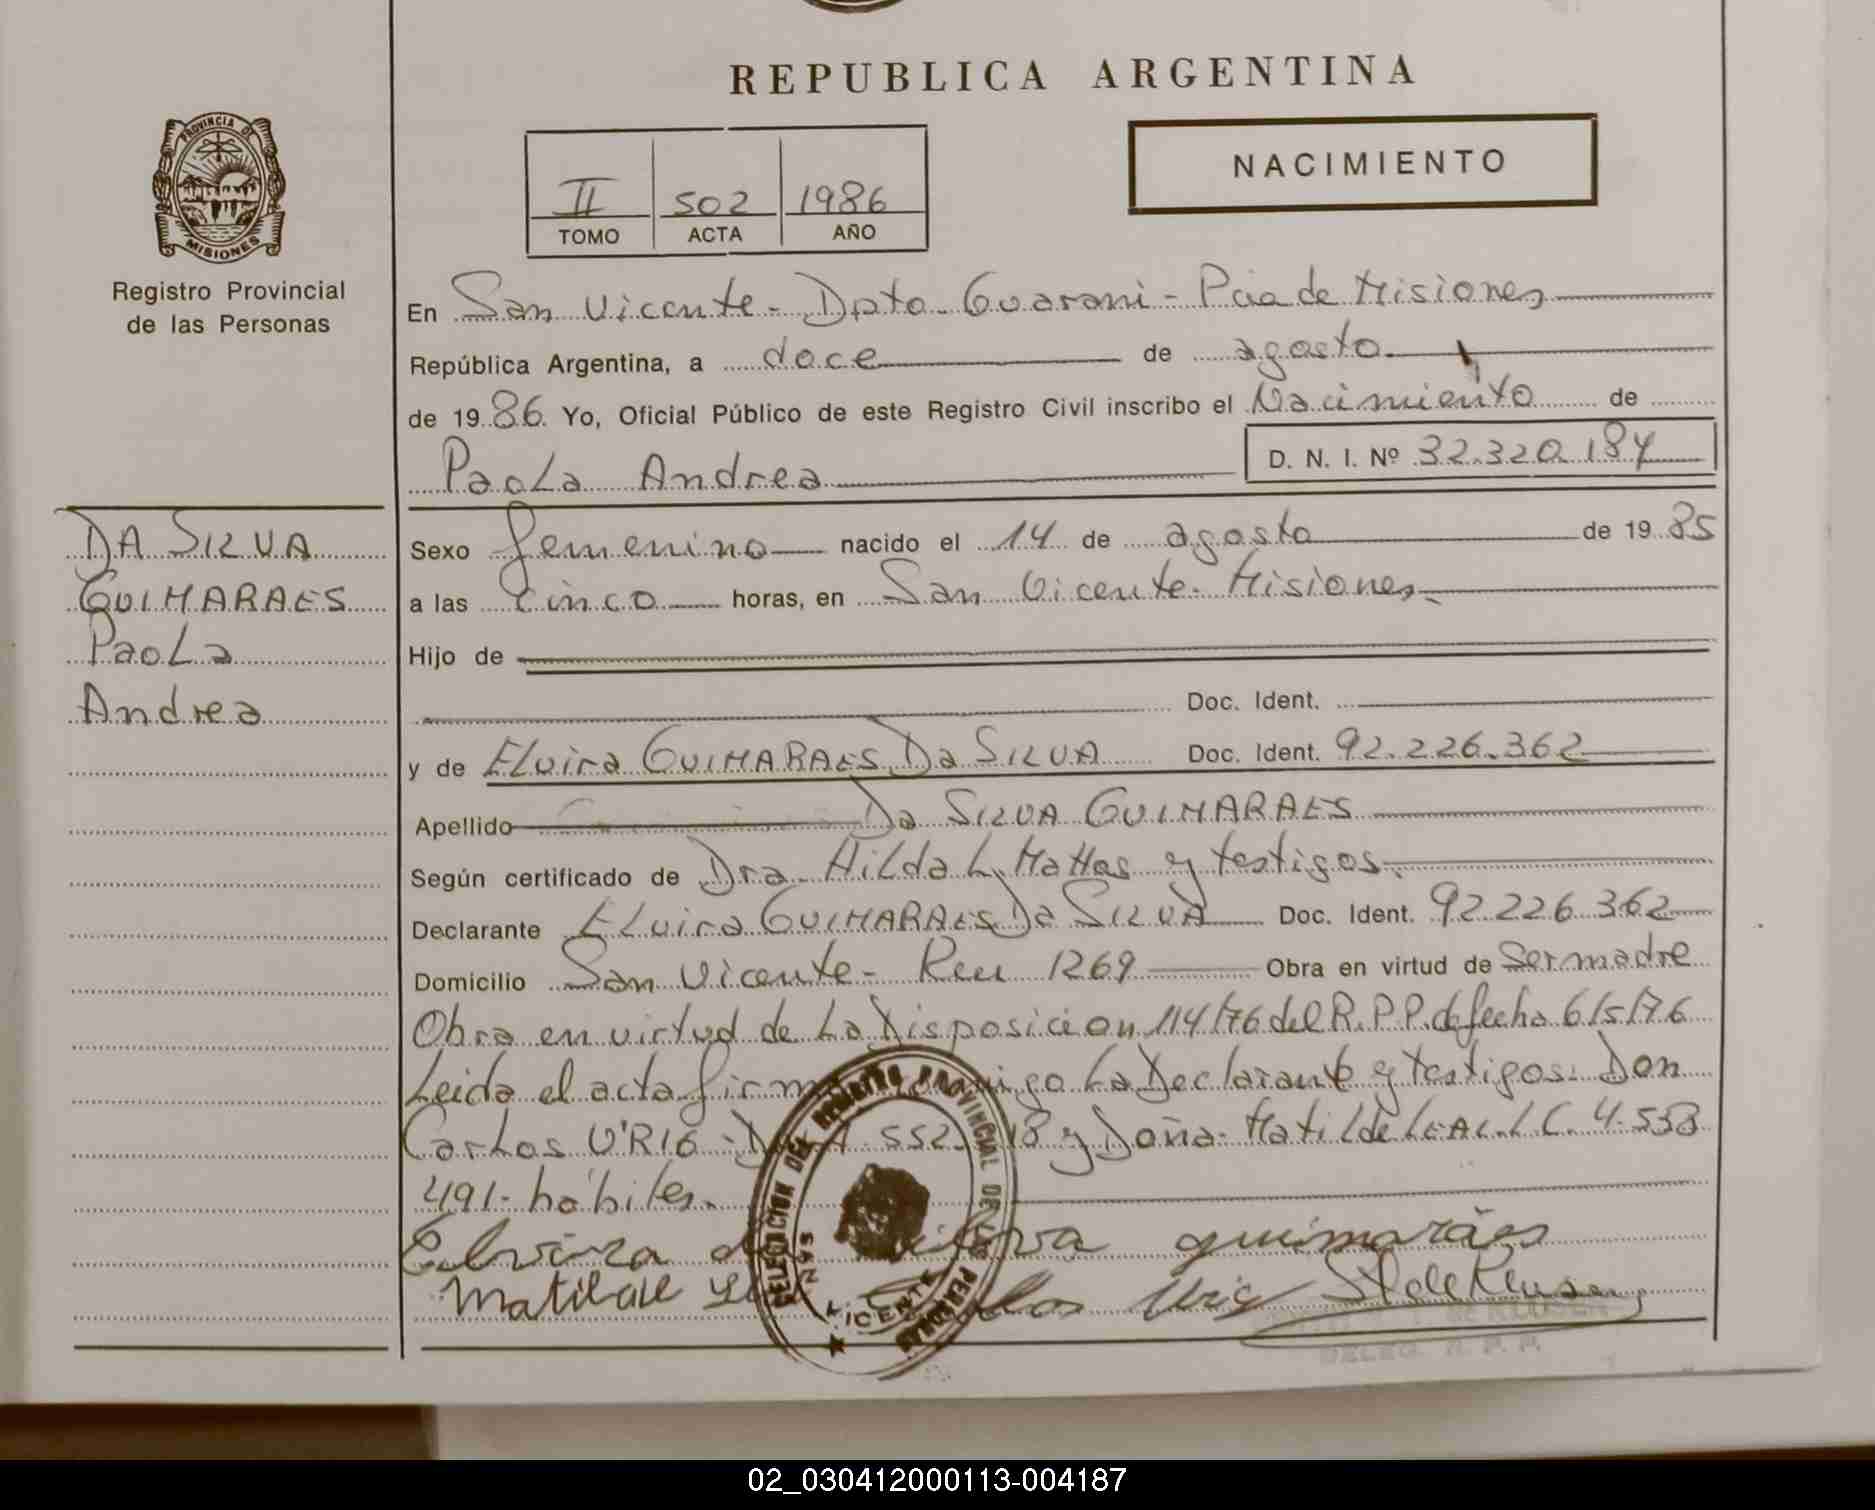 REPUBLICA ARGENTINA
PROVINCIA DE
MISIONES
Registro Provincial
de las Personas
NACIMIENTO
II 502 1986
TOMO ACTA AÑO
En San Vicente - Dpto Guarani - Pcia de Misiones
República Argentina, a doce de agosto
de 1986. Yo, Oficial Público de este Registro Civil inscribo el Nacimiento de
Paola Andrea D. N. I. Nº 32.320.184
DA SILVA
GUIMARAES
Paola
Andrea
Sexo femenino nacido el 14 de agosto de 1985
a las cinco horas, en San Vicente - Misiones
Hijo de
Doc. Ident.
y de Elvira GUIMARAES Da SILVA Doc. Ident. 92.226.362
Apellido Da SILVA GUIMARAES
Según certificado de Dra. Hilda L. Mattos y testigos.
Declarante Elvira GUIMARAES Da SILVA Doc. Ident. 92.226.362
Domicilio San Vicente - 1269 Obra en virtud de Ser madre
Obra en virtud de La Disposicion 114/76 del R.P.P. de fecha 6/5/76
Leida el acta La Declarante y testigos: Don
Carlos 552 y Doña Matilde LEAL L.C. 4.533
491 - hábiles.
Elvira da Silva guimarães
Matilde Carlos
DELEGACION DEL REGISTRO PROVINCIAL DE LAS PERSONAS
SAN VICENTE
DELEG. R. P. P.
02_030412000113-004187